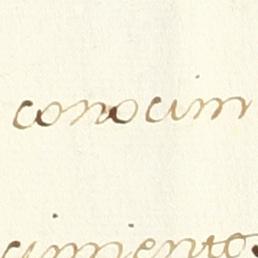 conocim
cimiento